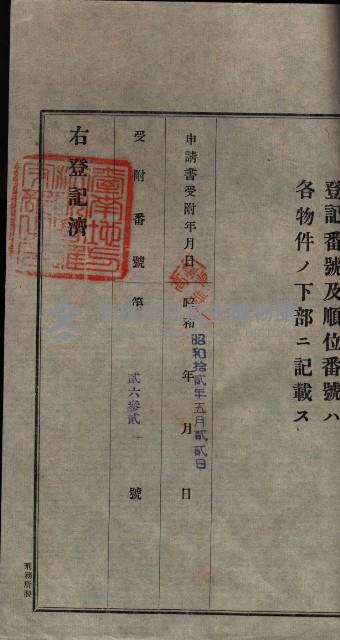 登記番號及順位番號ハ
各物件ノ下部ニ記載ス
申請書受附年月日 昭和 年 月 日
昭和拾貳年五月貳貳日
受附番號 第 號
貳六參貳
右登記濟
刑務所製